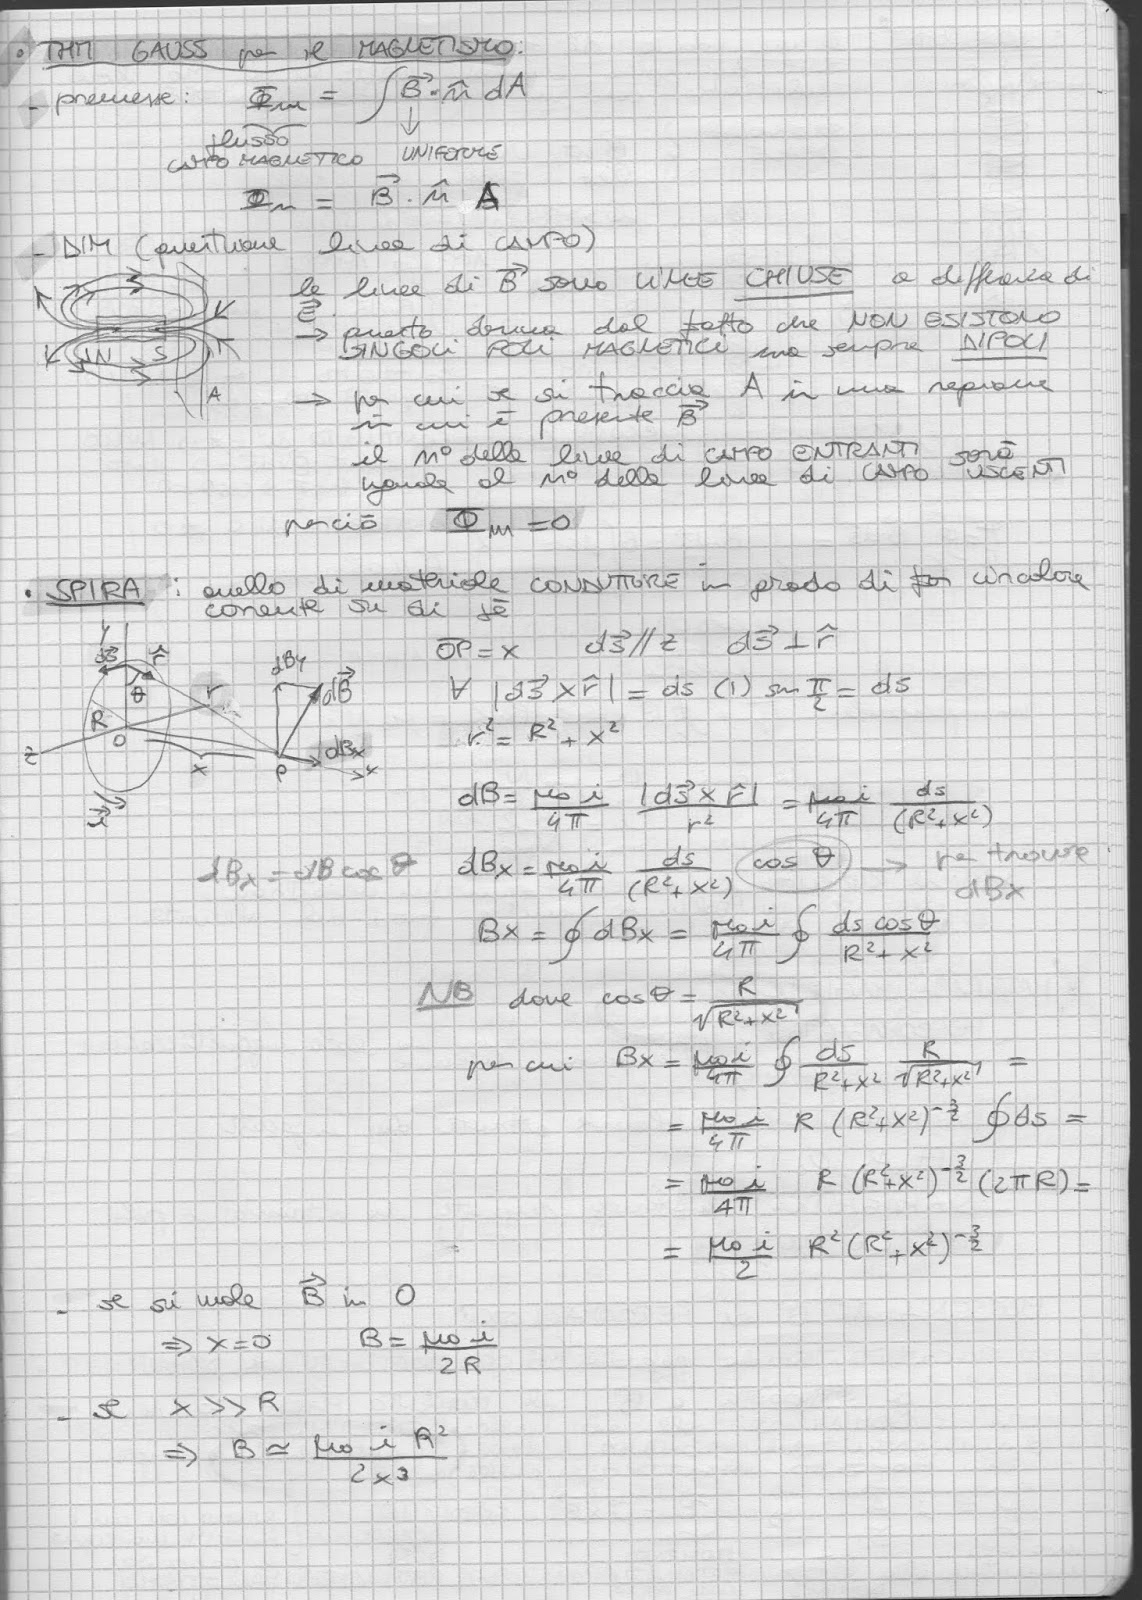 • THM GAUSS per il MAGNETISMO:
- premesse: Φm = ∫ B⃗ · n̂ dA
↓
flusso
CAMPO MAGNETICO UNIFORME
Φm = B⃗ · n̂ A
- DIM (questione linee di CAMPO)
le linee di B⃗ sono LINEE CHIUSE a differenza di
E⃗
→ questo deriva dal fatto che NON ESISTONO
SINGOLI POLI MAGNETICI ma sempre DIPOLI
N S
A
→ per cui se si traccia A in una regione
in cui è presente B⃗
il n° delle linee di CAMPO ENTRANTI sarà
uguale al n° delle linee di CAMPO USCENTI
perciò Φm = 0
• SPIRA : anello di materiale CONDUTTORE in grado di circolare
corrente su di sé
y ds⃗ r̂ θ r R O z x P x i⃗ dBy dB⃗ dBx
OP = x ds⃗ // z ds⃗ ⊥ r̂
∀ |ds⃗ x r̂| = ds (1) sen π/2 = ds
r² = R² + x²
dB = μ₀ i / 4π |ds⃗ x r̂| / r² = μ₀ i / 4π ds / (R² + x²)
dBx = dB cos θ dBx = μ₀ i / 4π ds / (R² + x²) cos θ → per trovare
dBx
Bx = ∮ dBx = μ₀ i / 4π ∮ ds cos θ / R² + x²
NB dove cos θ = R / √R² + x²
per cui Bx = μ₀ i / 4π ∮ ds / R² + x² R / √R² + x² =
= μ₀ i / 4π R (R² + x²)^-3/2 ∮ ds =
= μ₀ i / 4π R (R² + x²)^-3/2 (2πR) =
= μ₀ i / 2 R² (R² + x²)^-3/2
- se si vuole B⃗ in O
⇒ x = 0 B = μ₀ i / 2R
- se x >> R
⇒ B ≃ μ₀ i R² / 2x³